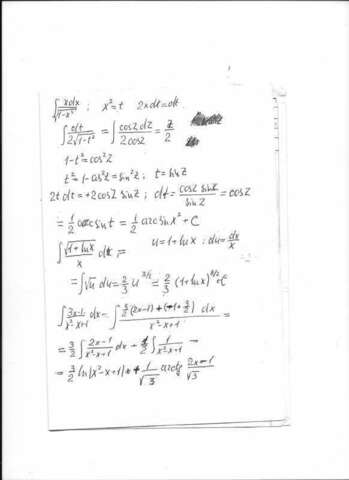 ∫ xdx/√(1-x⁴) ; x²=t 2xdx=dt
∫ dt/(2√(1-t²)) = ∫ cosz dz/(2cosz) = z/2
1-t²=cos²z
t²=1-cos²z=sin²z; t=sinz
2t dt=+2cosz sinz; dt= cosz sinz/sinz = cosz
= 1/2 arcsin t = 1/2 arcsin x² + C
∫ √(1+lnx)/x dx = u=1+lnx; du=dx/x
= ∫√u du = 2/3 u^(3/2) = 2/3 (1+lnx)^(3/2)+C
∫ (3x-1)/(x²-x+1) dx = ∫ (3/2(2x-1)+(-1+3/2))/(x²-x+1) dx =
= 3/2 ∫ (2x-1)/(x²-x+1) dx + 1/2 ∫ 1/(x²-x+1) =
= 3/2 ln|x²-x+1| + 1/√3 arctg (2x-1)/√3